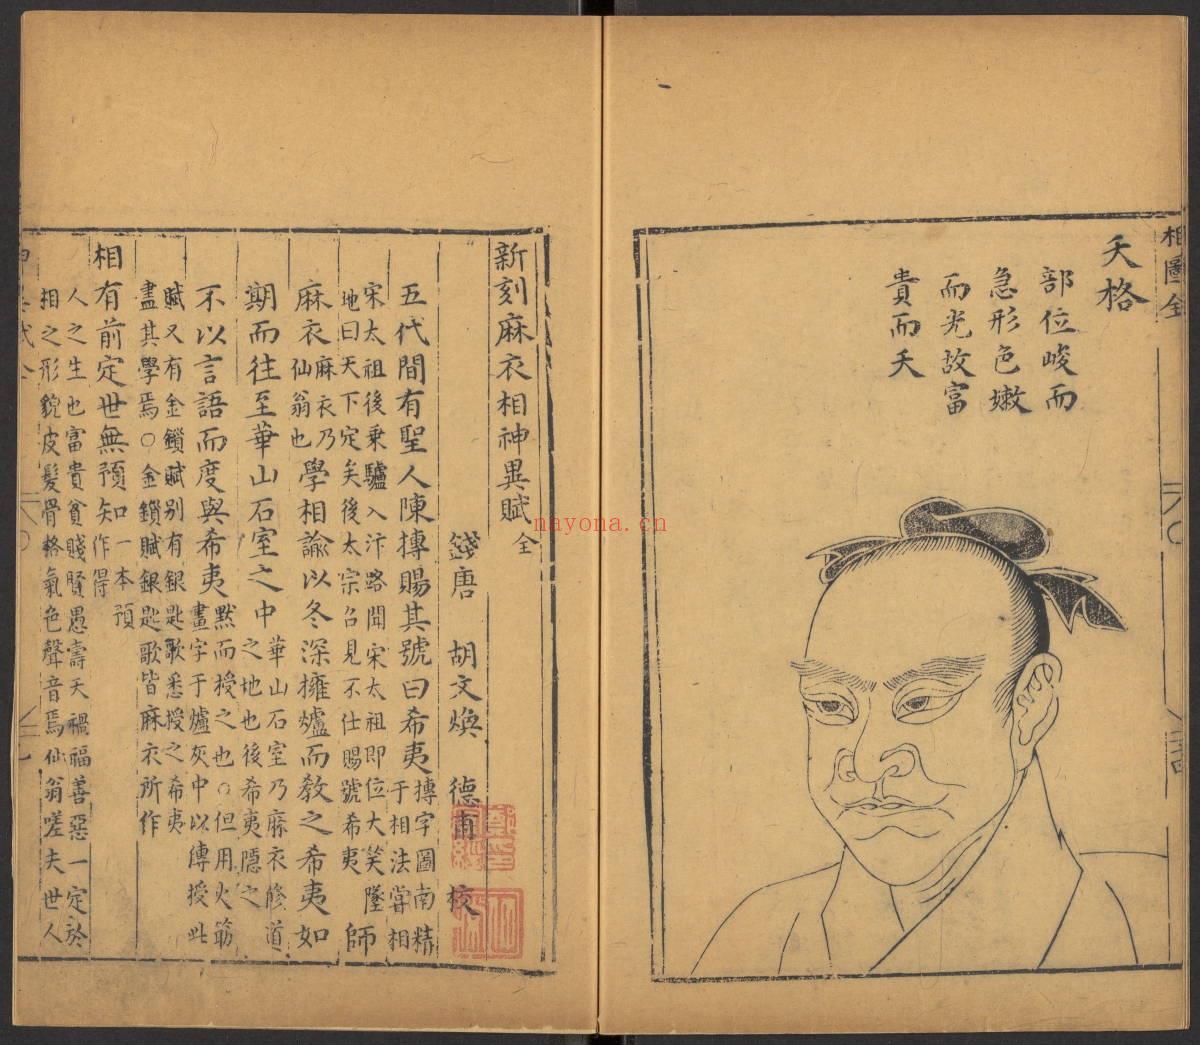 相圖全
夭格
部位峻而
急形色嫩
而光故富
貴而夭
新刻麻衣相神異賦全
錢唐 胡文煥 德甫 校
五代間有聖人陳摶賜其號曰希夷摶字圖南精于相法嘗相
宋太祖後乗驢入汴路聞宋太祖即位大笑墜地曰天下定矣後太宗召見不仕賜號希夷師
麻衣麻衣乃仙翁也學相諭以冬深擁爐而教之希夷如
期而往至華山石室之中華山石室乃麻衣修道之地也後希夷隱之
不以言語而度與希夷默而授之也○但用火筯畫字于爐灰中以傳授此
賦又有金鎖賦别有銀匙歌悉授之希夷盡其學焉○金鎖賦銀匙歌皆麻衣所作
相有前定世無預知一本預作得
人之生也富貴貧賤賢愚壽夭禍福善惡一定於
相之形貌皮髮骨骼氣色聲音焉仙翁嗟夫世人
nayona.cn